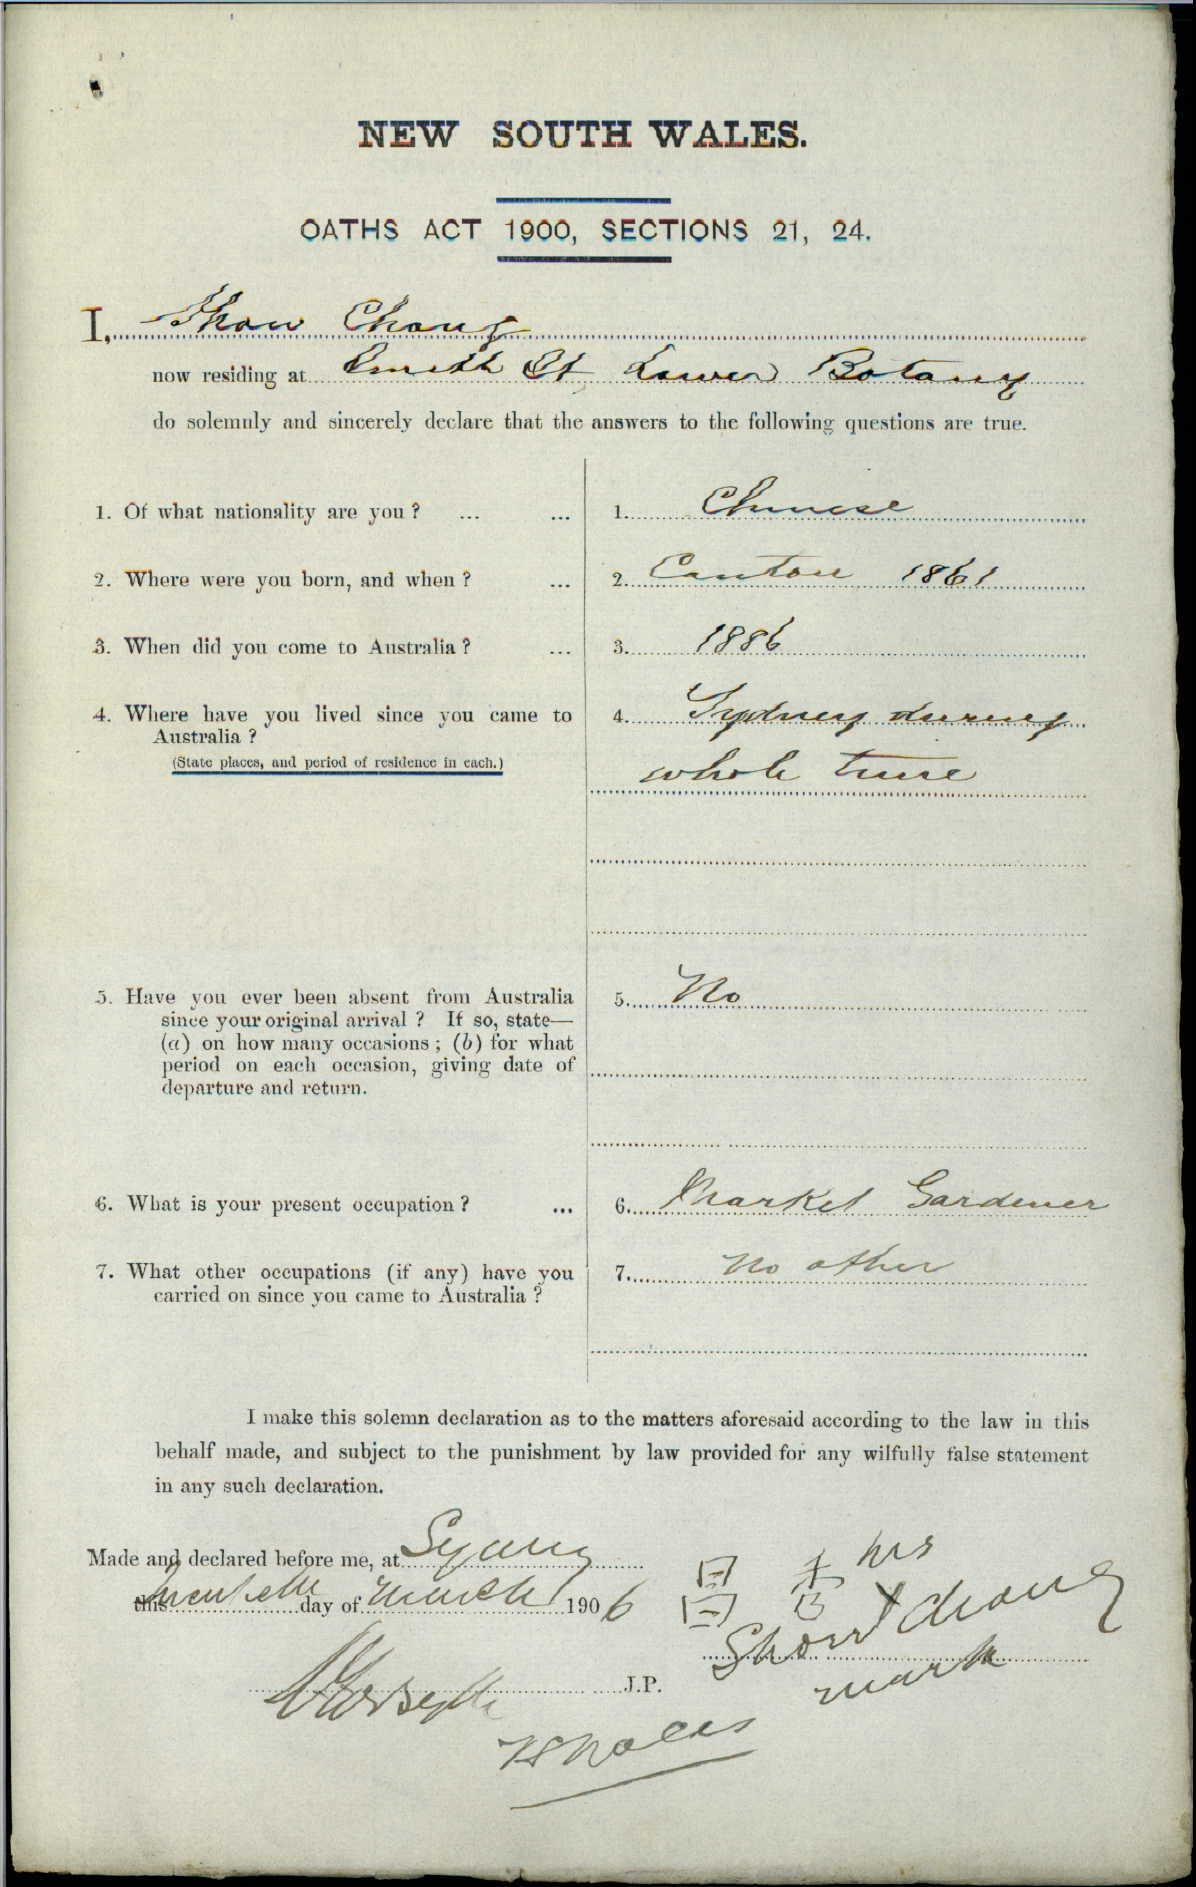 NEW SOUTH WALES.
OATHS ACT 1900, SECTIONS 21, 24.
I, Show Chong
now residing at Smith St Lower Botany
do solemnly and sincerely declare that the answers to the following questions are true.
1. Of what nationality are you ? ... ... 1. Chinese
2. Where were you born, and when ? ... 2. Canton 1861
3. When did you come to Australia ? ... 3. 1886
4. Where have you lived since you came to 4. Sydney during
Australia ?
(State places, and period of residence in each.)
whole time
5. Have you ever been absent from Australia 5. No
since your original arrival ? If so, state—
(a) on how many occasions ; (b) for what
period on each occasion, giving date of
departure and return.
6. What is your present occupation ? ... 6. Market Gardener
7. What other occupations (if any) have you 7. No other
carried on since you came to Australia ?
I make this solemn declaration as to the matters aforesaid according to the law in this
behalf made, and subject to the punishment by law provided for any wilfully false statement
in any such declaration.
Made and declared before me, at Sydney
his
this day of March 1906
Show X Chong
mark
J.P.
NS Wales